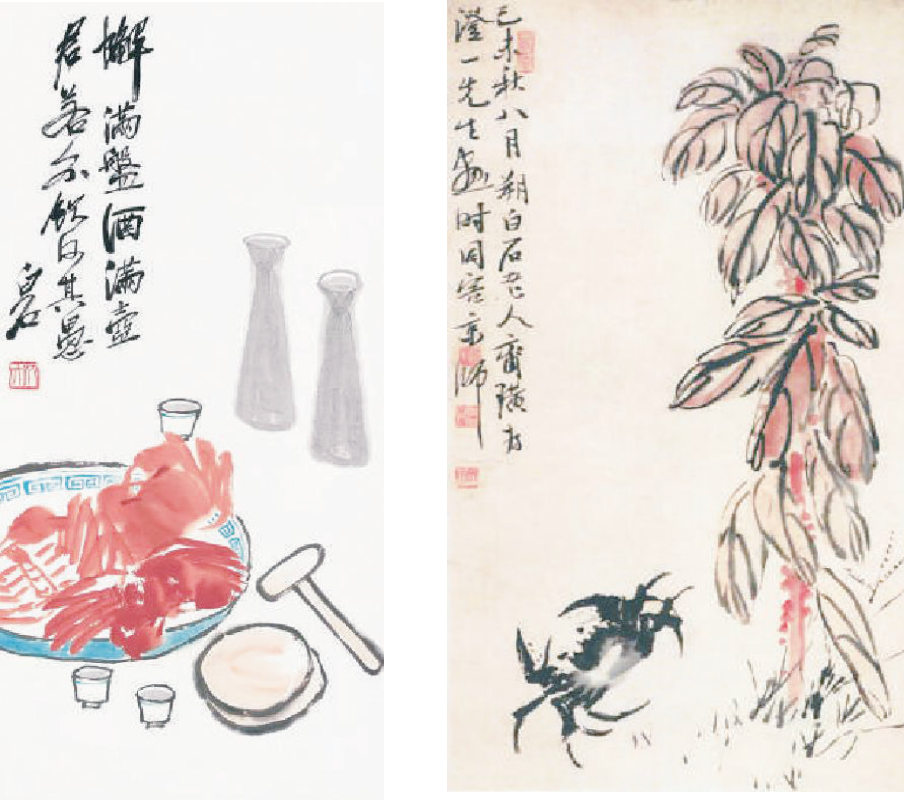 蠏滿盤酒滿壺
君若不飲何其愚
白石
己未秋八月朔白石老人齊璜為
澄一先生畫時同客京師